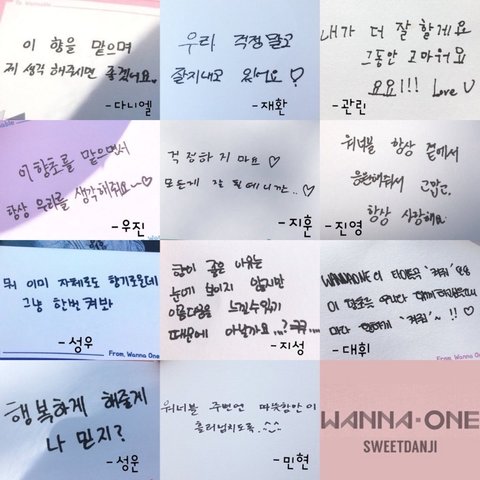 이 향을 맡으며
제 생각 해주시면 좋겠어요.
- 다니엘
우리 걱정 말고
잘지내고 있어요 ♡
- 재환
내가 더 잘 할게요
그동안 고마워요
요요!!! Love U
- 관린
이 향초를 맡으면서
항상 우리를 생각해줘요~♡
- 우진
걱정하지 마요 ♡
모든게 잘 될테니깐..♡
- 지훈
워너블 항상 곁에서
응원해줘서 고맙고,
항상 사랑해요.
- 진영
뭐 이미 자체로도 향기로운데
그냥 한번 켜봐
- 성우
From. Wanna One
향이 좋은 이유는
눈에 보이지 않지만
아름다움을 느낄수있기
때문에 아닐까요...?
- 지성
WANNAONE의 타이틀은 '켜줘'
이 향초를
'켜줘'~!! ♡
- 대휘
From. Wanna One
행복하게 해줄게
나 믿지?
- 성운
워너블 주변엔 따뜻함만이
흘러넘치도록.^^
- 민현
WANNA·ONE
SWEETDANJI